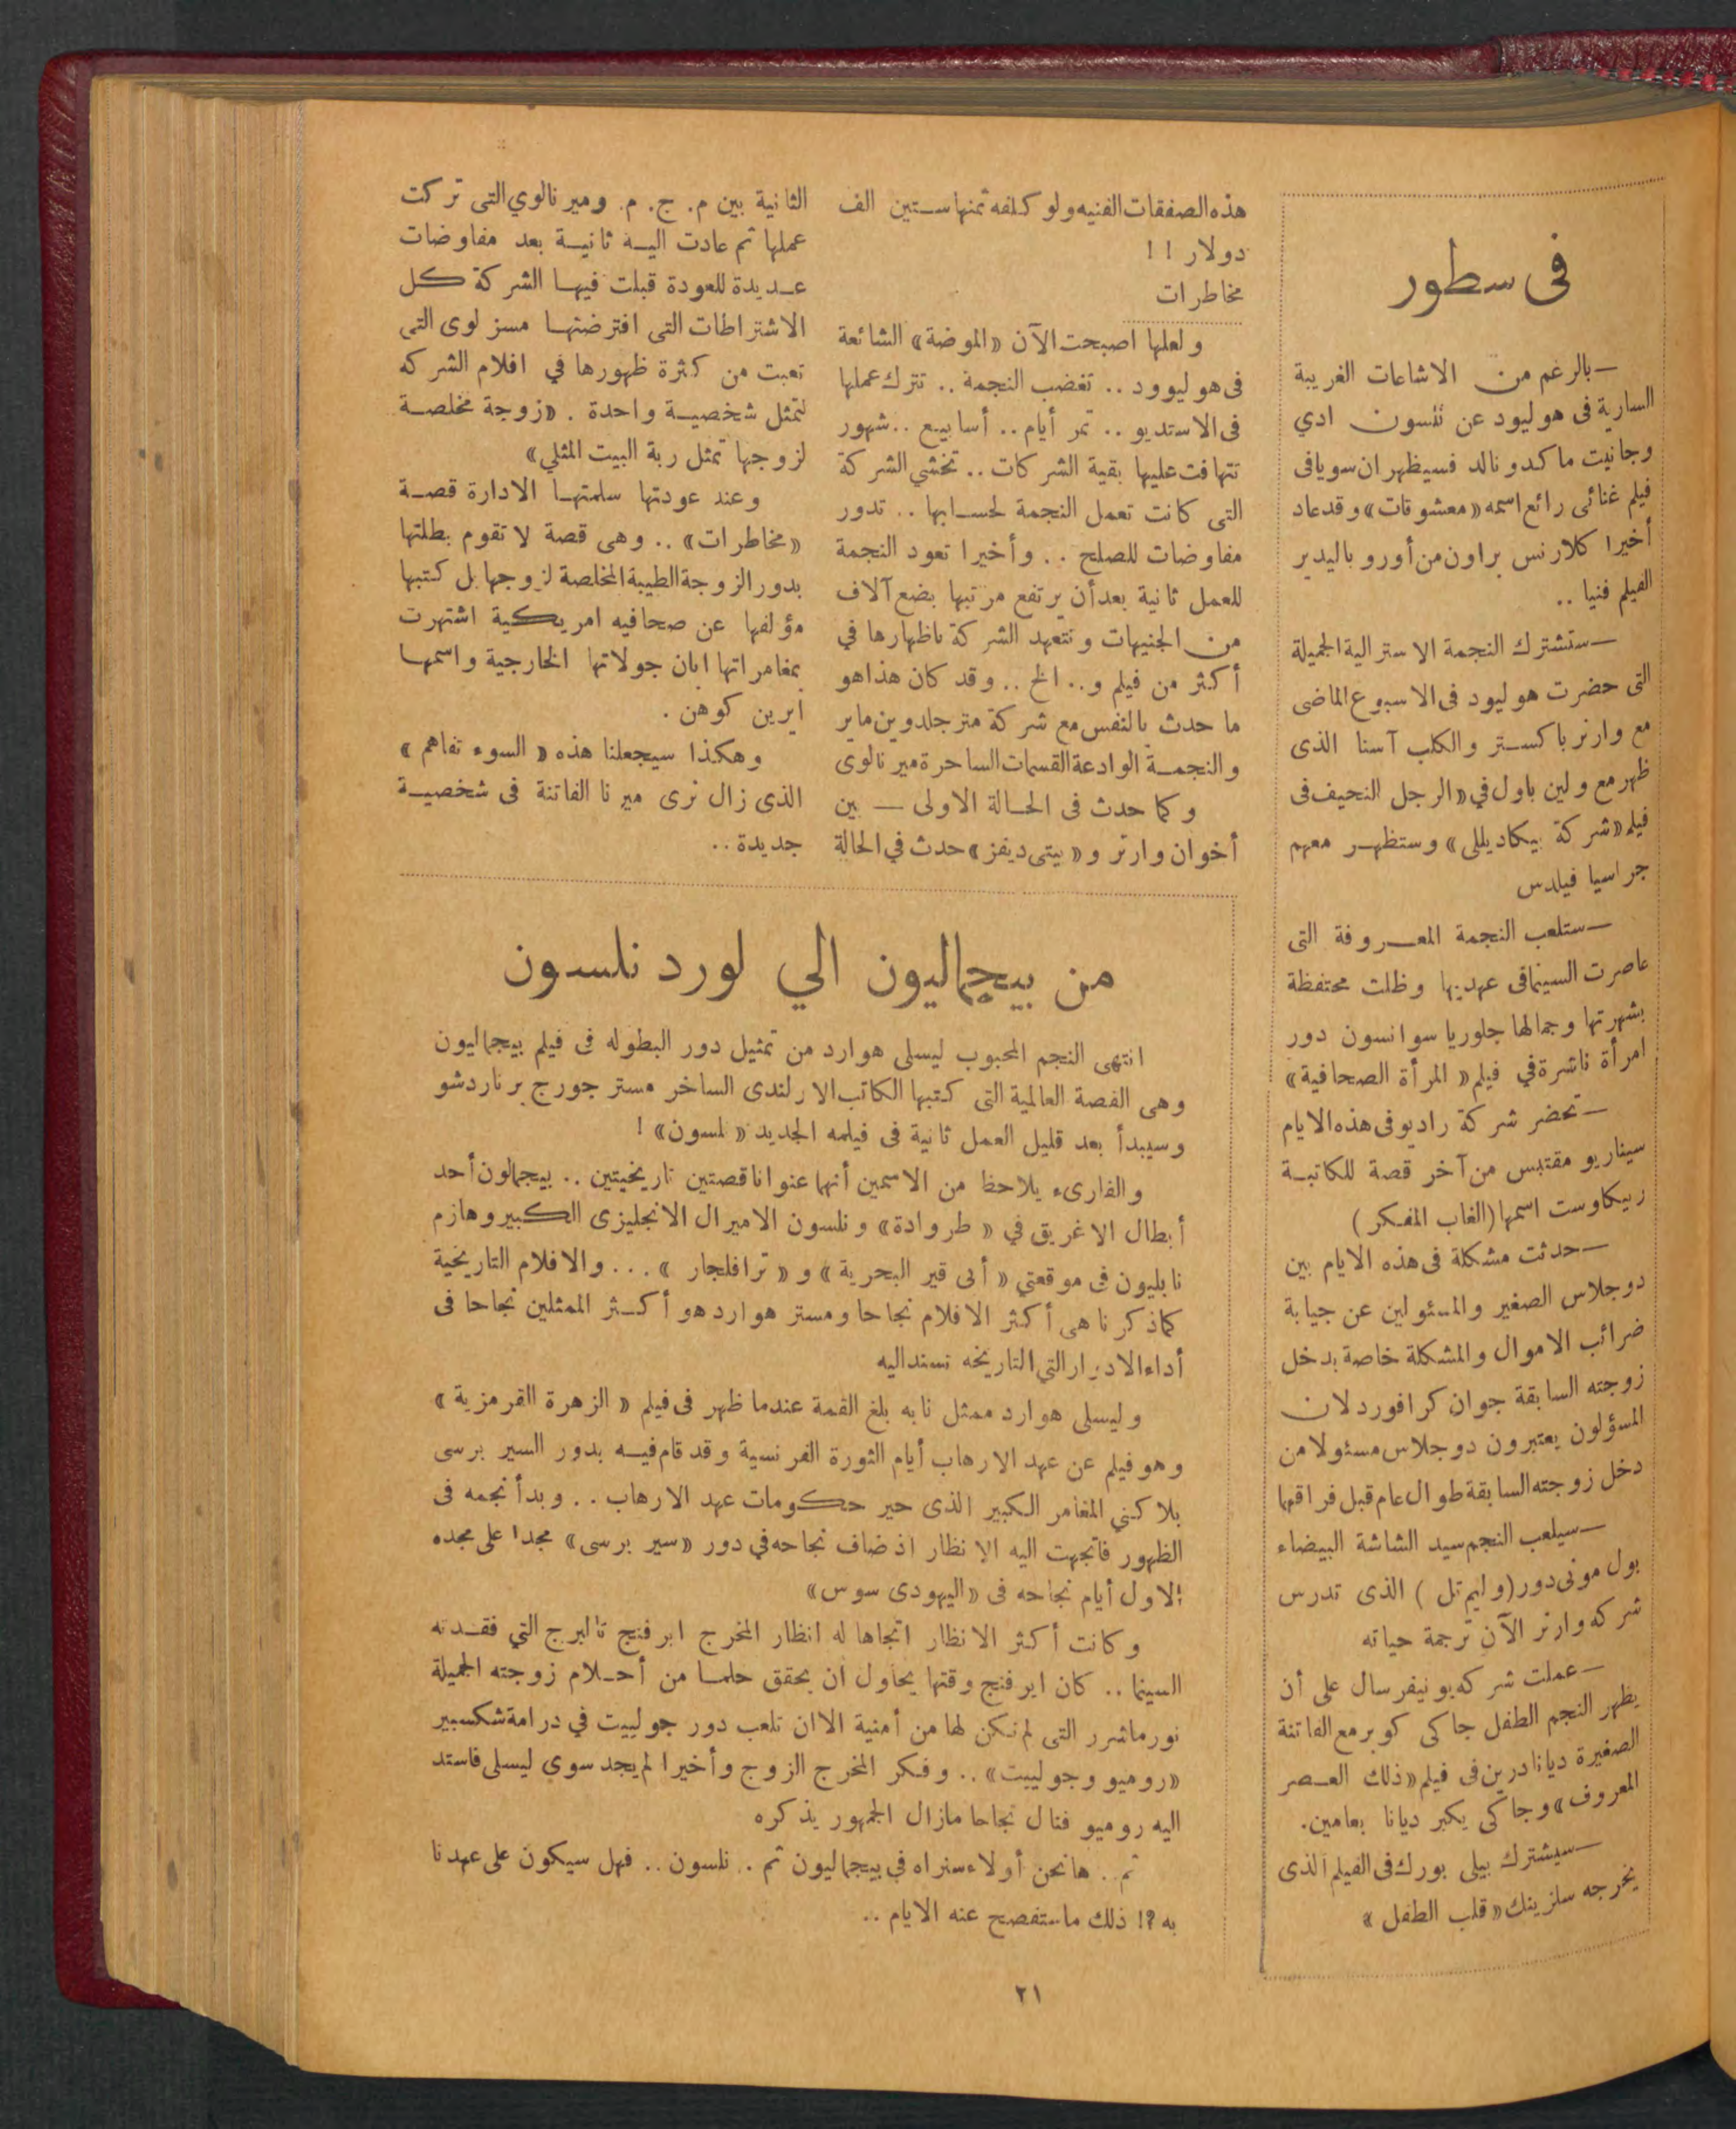 فى سطور
—بالرغم من الاشاعات الغريبة
السارية فى هوليود عن نلسون ادي
وجانيت ماكدونالد فسيظهران سويا فى
فيلم غنائى رائع اسمه «معشوقات» وقد عاد
أخيرا كلارنس براون من أوروبا ليدير
الفيلم فنيا ..
—ستشترك النجمة الاسترالية الجميلة
التى حضرت هوليود فى الاسبوع الماضى
مع وارنر باكستر والكلب آستا الذى
ظهر مع ولين باول في «الرجل النحيف فى
فيلم «شركة بيكاديللى» وستظهر معهم
جراسيا فيلدس
—ستلعب النجمة المعروفة التى
عاصرت السينما فى عهديها وظلت محتفظة
بشهرتها وجمالها جلوريا سوانسون دور
امرأة ناشرة في فيلم «المرأة الصحافية»
—تحضر شركة راديو فى هذه الايام
سيناريو مقتبس من آخر قصة للكاتبة
ربيكا وست اسمها (الغاب المفكر)
—حدثت مشكلة فى هذه الايام بين
دوجلاس الصغير والمسئولين عن جباية
ضرائب الاموال والمشكلة خاصة بدخل
زوجته السابقة جوان كرافورد لان
المسؤلون يعتبرون دوجلاس مسئولا من
دخل زوجته السابقة طوال عام قبل فراقها
—سيلعب النجم سيد الشاشة البيضاء
بول مونى دور (وليم تل) الذى تدرس
شركه وارنر الآن ترجمة حياته
—عملت شركه يونيفرسال على أن
يظهر النجم الطفل جاكى كوبر مع الفاتنة
الصغيرة ديانا دربن فى فيلم «ذلك العصر
المعروف» وجاكى يكبر ديانا بعامين.
—سيشترك بيلى بورك فى الفيلم الذى
يخرجه سلزينك «قلب الطفل»
هذه الصفقات الفنيه ولو كلفه ثمنها ستين الف
دولار !!
مخاطرات
ولعلها اصبحت الآن «الموضة» الشائعة
فى هوليوود .. تغضب النجمة .. تترك عملها
فى الاستديو .. تمر أيام .. أسابيع .. شهور
تتهافت عليها بقية الشركات .. تخشي الشركة
التى كانت تعمل النجمة لحسابها .. تدور
مفاوضات للصلح .. وأخيرا تعود النجمة
للعمل ثانية بعد أن يرتفع مرتبها بضع آلاف
من الجنيهات وتتعهد الشركة باظهارها في
أكثر من فيلم و.. الخ .. وقد كان هذا هو
ما حدث بالنفس مع شركة متر جلدوين ماير
والنجمة الوادعة القسمات الساحرة ميرنا لوى
وكما حدث فى الحالة الاولى — بين
أخوان وارنر و «بيتى ديفز» حدث في الحالة
الثانية بين م. ج. م. وميرنا لوي التى تركت
عملها ثم عادت اليه ثانية بعد مفاوضات
عديدة للعودة قبلت فيها الشركة كل
الاشتراطات التى افترضتها مسز لوى التى
تعبت من كثرة ظهورها في افلام الشركه
لتمثل شخصية واحدة . «زوجة مخلصة
لزوجها تمثل ربة البيت المثلي»
وعند عودتها سلمتها الادارة قصة
«مخاطرات» .. وهى قصة لا تقوم بطلتها
بدور الزوجة الطيبة المخلصة لزوجها بل كتبها
مؤلفها عن صحافيه امريكية اشتهرت
بمغامراتها ابان جولاتها الخارجية واسمها
ايرين كوهن .
وهكذا سيجعلنا هذه «السوء تفاهم»
الذى زال نرى ميرنا الفاتنة فى شخصية
جديدة ..
من بيجماليون الي لورد نلسون
انتهى النجم المحبوب ليسلى هوارد من تمثيل دور البطوله فى فيلم بيجماليون
وهى القصة العالمية التى كتبها الكاتب الارلندى الساخر مستر جورج برناردشو
وسيبدأ بعد قليل العمل ثانية فى فيلمه الجديد «لسون» !
والقارىء يلاحظ من الاسمين أنهما عنوانا قصتين تاريخيتين .. بيجمالون أحد
أبطال الاغريق في «طروادة» ونلسون الاميرال الانجليزى الكبير وهازم
نابليون فى موقعتي «أبى قير البحرية» و «ترافلجار» ... والافلام التاريخية
كما ذكرنا هى أكثر الافلام نجاحا ومستر هوارد هو أكثر الممثلين نجاحا فى
أداء الادوار التي التاريخه تسند اليه
وليسلى هوارد ممثل نابه بلغ القمة عندما ظهر فى فيلم «الزهرة القرمزية»
وهو فيلم عن عهد الارهاب أيام الثورة الفرنسية وقد قام فيه بدور السير برسى
بلاكني المغامر الكبير الذى حير حكومات عهد الارهاب .. وبدأ نجمه فى
الظهور فاتجهت اليه الانظار اذ ضاف نجاحه في دور «سير برسى» مجدا على مجده
الاول أيام نجاحه فى «اليهودى سوس»
وكانت أكثر الانظار اتجاها له انظار المخرج ايرفنج تالبرج التي فقدته
السينما .. كان ايرفنج وقتها يحاول ان يحقق حلما من أحلام زوجته الجميلة
نورما شرر التى لم تكن لها من أمنية الا ان تلعب دور جولييت في درامة شكسبير
«روميو وجولييت» .. وفكر المخرج الزوج وأخيرا لم يجد سوى ليسلى فاسند
اليه روميو فنال نجاحا مازال الجمهور يذكره
ثم .. هانحن أولاء سنراه في بيجماليون ثم .. نلسون .. فهل سيكون على عهدنا
به ؟! ذلك ما ستفصح عنه الايام ..
٢١